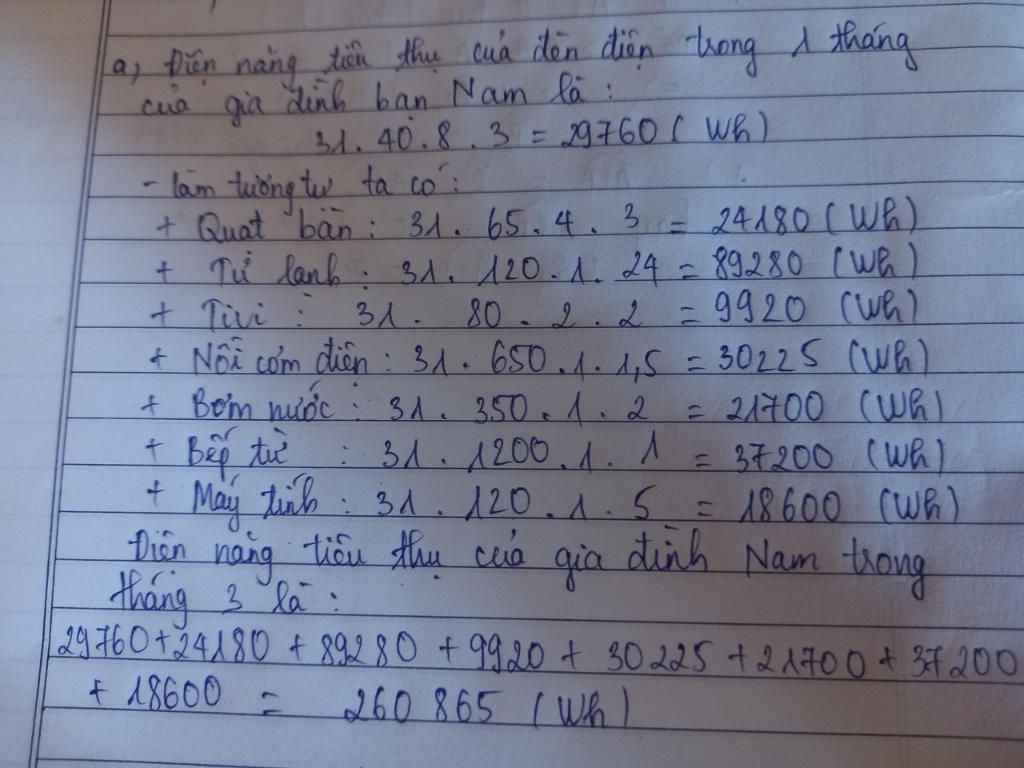 a, Điện năng tiêu thụ của đèn điện trong 1 tháng
của gia đình bạn Nam là :
31 . 40 . 8 . 3 = 29760 ( Wh )
- làm tương tự ta có :
+ Quạt bàn : 31 . 65 . 4 . 3 = 24180 ( Wh )
+ Tủ lạnh : 31 . 120 . 1 . 24 = 89280 ( Wh )
+ Tivi : 31 . 80 . 2 . 2 = 9920 ( Wh )
+ Nồi cơm điện : 31 . 650 . 1 . 1,5 = 30225 ( Wh )
+ Bơm nước : 31 . 350 . 1 . 2 = 21700 ( Wh )
+ Bếp từ : 31 . 1200 . 1 . 1 = 37200 ( Wh )
+ Máy tính : 31 . 120 . 1 . 5 = 18600 ( Wh )
Điện năng tiêu thụ của gia đình Nam trong
tháng 3 là :
29760 + 24180 + 89280 + 9920 + 30225 + 21700 + 37200
+ 18600 = 260 865 ( Wh )